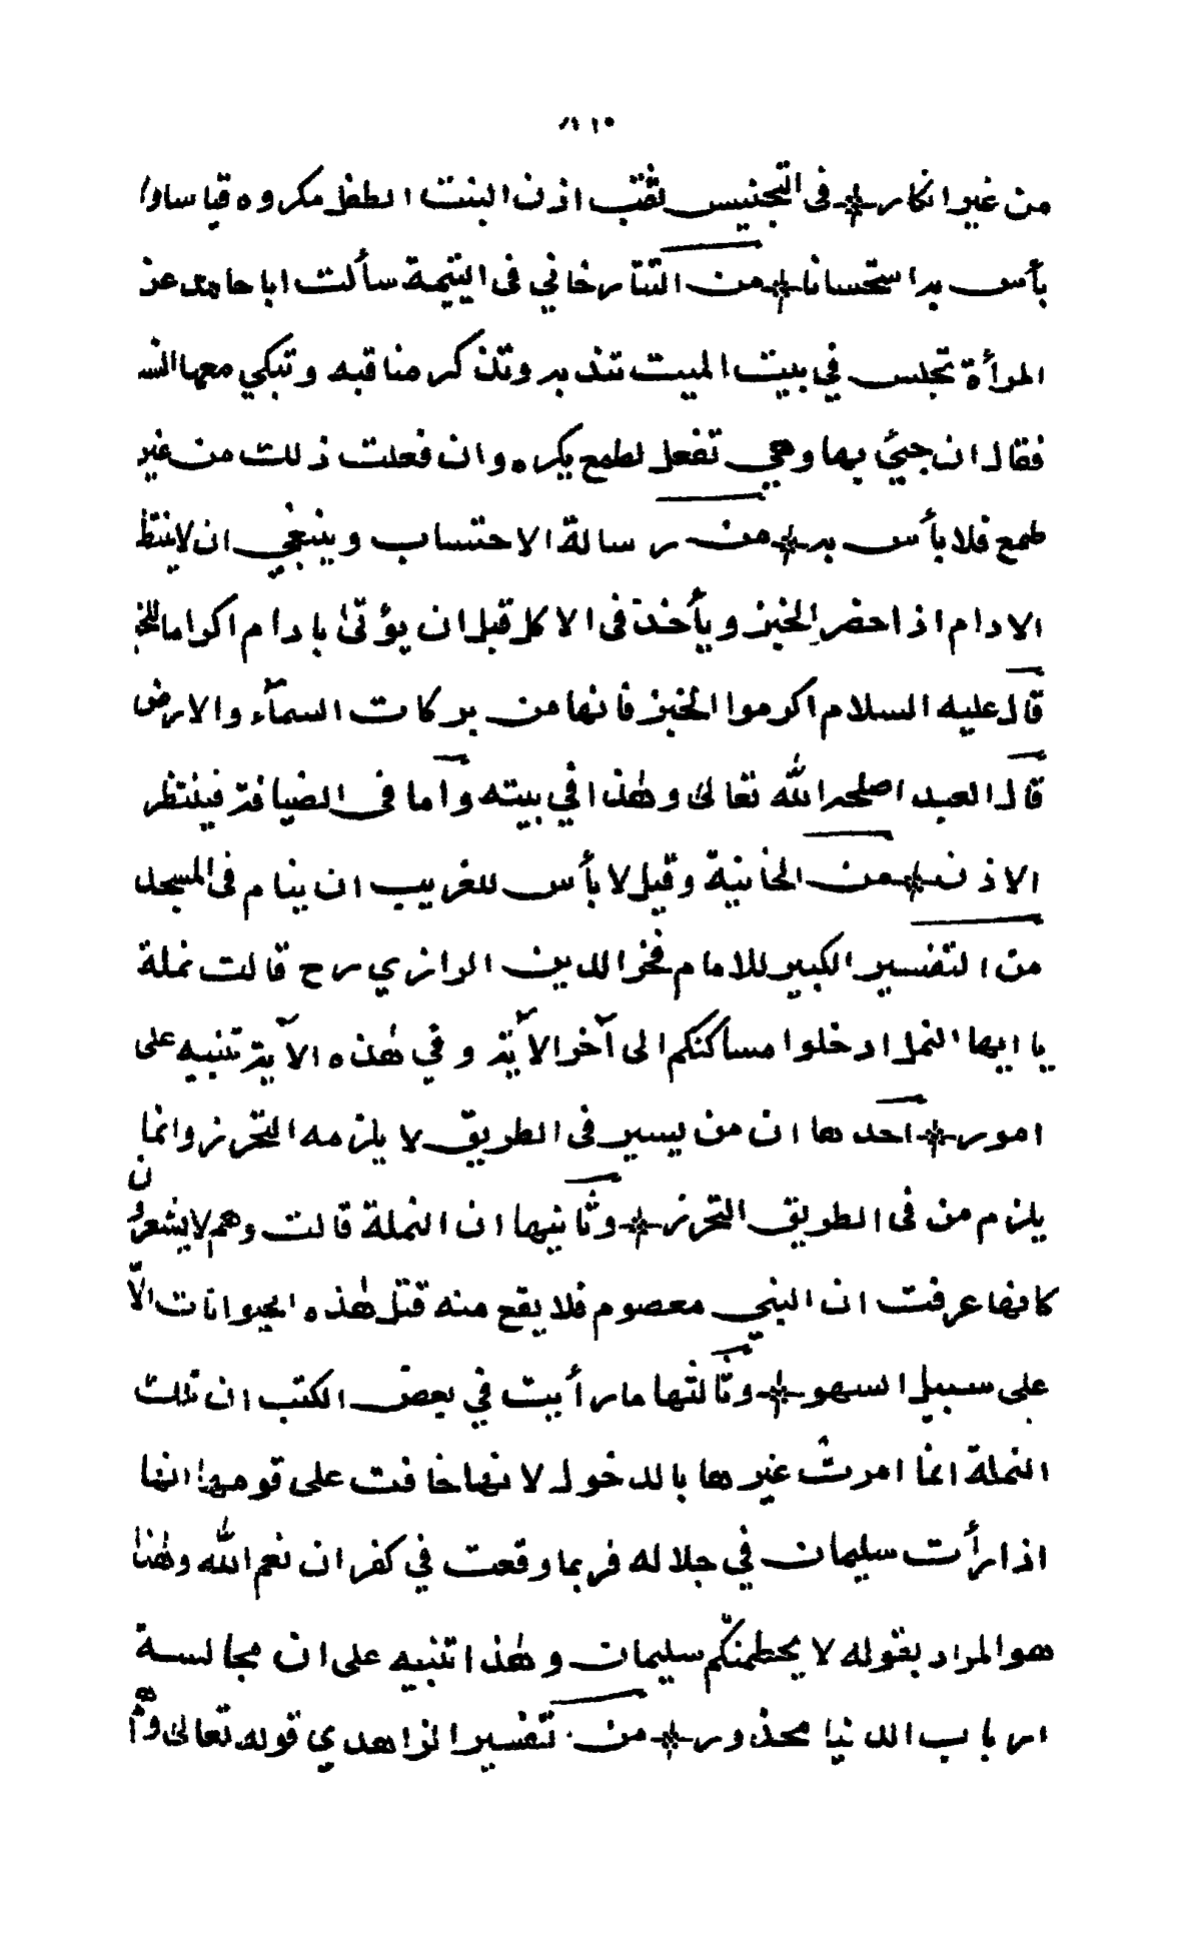 من غير انكار في التجنيس ثقب اذن البنت الطفل مكروه قياسا ولا
بأس به استحسانا من التتارخاني في اليتيمة سألت ابا حامد عن
المرأة تجلس في بيت الميت تندبه وتذكر مناقبه وتبكي معها النسا
فقال ان جيئ بها وهي تفعل لطمع يكره وان فعلت ذلك من غير
طمع فلا بأس به من رسالة الاحتساب وينبغي ان لا ينتظر
الادام اذا حضر الخبز ويأخذ في الاكل قبل ان يؤتى بادام اكراما للخبز
قال عليه السلام اكرموا الخبز فانها من بركات السمآء والارض
قال العبد اصلحه الله تعالى وهذا في بيته وأما في الضيافة فينتظر
الاذن من الخانية وقيل لا بأس للغريب ان ينام في المسجد
من التفسير الكبير للامام فخر الدين الرازي رح قالت نملة
يا ايها النمل ادخلوا مساكنكم الى آخر الآية وفي هذه الآية تنبيه على
امور احدها ان من يسير في الطريق لا يلزمه التحرز وانما
يلزم من في الطريق التحرز وثانيها ان النملة قالت وهم لا يشعرون
كانها عرفت ان النبي معصوم فلا يقع منه قتل هذه الحيوانات الّا
على سبيل السهو وثالثها ما رأيت في بعض الكتب ان تلك
النملة انما امرت غيرها بالدخول لانها خافت على قومها انها
اذا رأت سليمان في جلاله فربما وقعت في كفران نعم الله وهذا
هو المراد بقوله لا يحطمنّكم سليمان وهذا تنبيه على ان مجالسة
ارباب الدنيا محذور من تفسير الزاهدي قوله تعالى